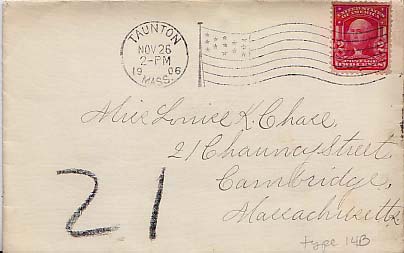 TAUNTON
NOV 26
2-PM
19 06
MASS.
UNITED STATES
OF AMERICA
2 2
POSTAGE
TWO CENTS
Miss Louise K. Chase,
21 Chauncy Street,
Cambridge,
Massachusetts
21
type 14B